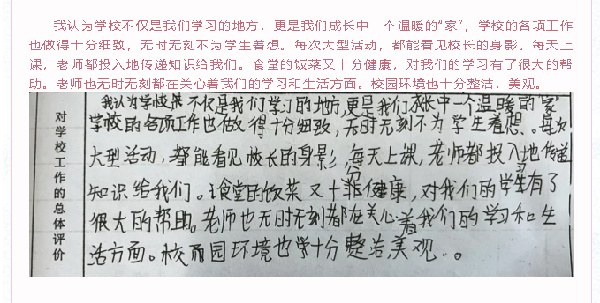 我认为学校不仅是我们学习的地方，更是我们成长中一个温暖的“家”，学校的各项工作
也做得十分细致，无时无刻不为学生着想。每次大型活动，都能看见校长的身影，每天上
课，老师都投入地传递知识给我们。食堂的饭菜又十分健康，对我们的学习有了很大的帮
助。老师也无时无刻都在关心着我们的学习和生活方面。校园环境也十分整洁、美观。
对学校工作的总体评价
我认为学校不仅是我们学习的地方，更是我们成长中一个温暖的“家”
学校的各项工作也做得十分细致，无时无刻不为学生着想。每次
大型活动，都能看见校长的身影，每天上课，老师都投入地传递
知识给我们。食堂的饭菜又十分健康，对我们的学习有了
很大的帮助。老师也无时无刻都在关心着我们的学习和生
活方面。校园环境也十分整洁、美观。